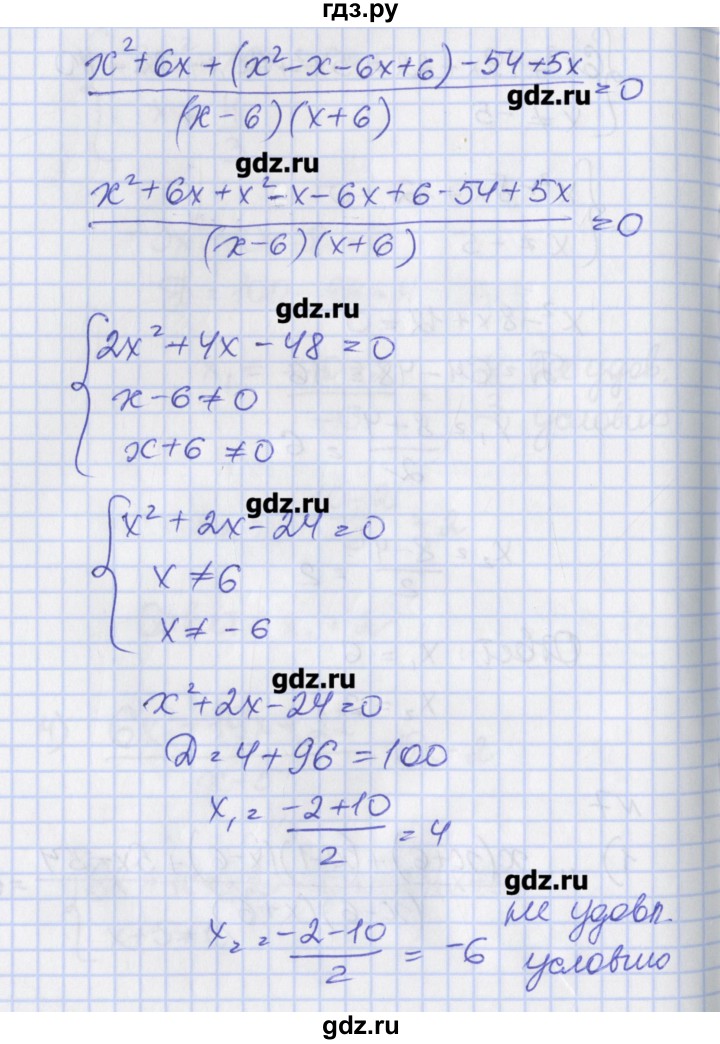 гдз.ру
x² + 6x + (x² - x - 6x + 6) - 54 + 5x
(x - 6)(x + 6)
= 0
gdz.ru
gdz.ru
x² + 6x + x² - x - 6x + 6 - 54 + 5x
(x - 6)(x + 6)
= 0
gdz.ru
2x² + 4x - 48 = 0
x - 6 ≠ 0
x + 6 ≠ 0
gdz.ru
x² + 2x - 24 = 0
x ≠ 6
x ≠ - 6
gdz.ru
x² + 2x - 24 = 0
D = 4 + 96 = 100
x₁ = (-2 + 10)/2 = 4
gdz.ru
x₂ = (-2 - 10)/2 = -6 не удовл.
условию
gdz.ru
gdz.ru